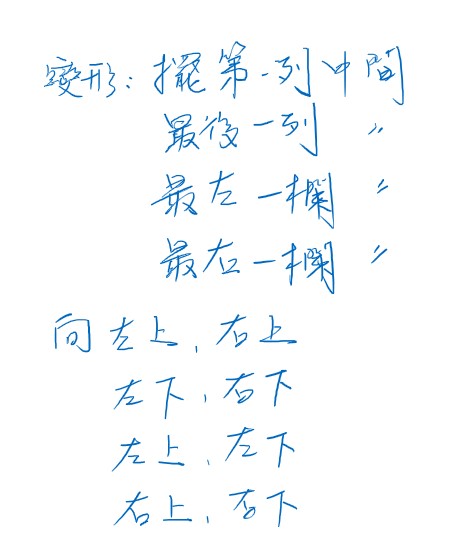 變形：擺第一列中間
最後一列 〃
最左一欄 〃
最右一欄 〃
向左上、右上
左下、右下
左上、左下
右上、右下